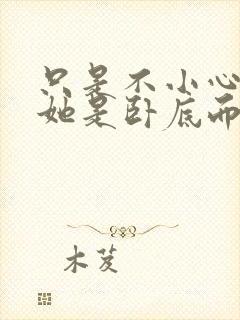 只是不小心
她是卧底而
木芨